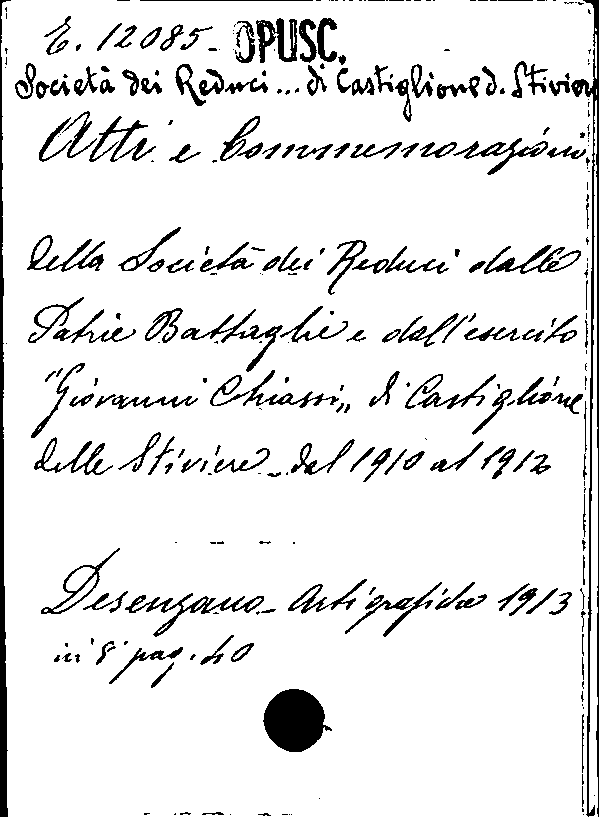 E. 12085- OPUSC.
Società dei Reduci ... di Castiglione d. Stiviere
Atti e Commemorazioni
della Società dei Reduci dalle
Patrie Battaglie e dall'esercito
"Giovanni Chiassi„ di Castiglione
delle Stiviere - dal 1910 al 1912
Desenzano - Arti grafiche 1913
in 8° pag. 40